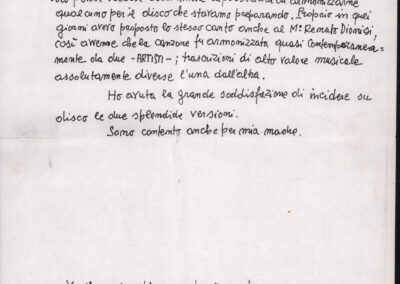 qualcuno per il disco che stavamo preparando. Proprio in quei
giorni avevo proposto lo stesso canto anche al M° Renato Dionisi,
così avvenne che la canzone fu armonizzata quasi contemporanea=
mente da due -ARTISTI- ; trascrizioni di alto valore musicale
assolutamente diverse l'una dall'altra.
Ho avuta la grande soddisfazione di incidere su
disco le due splendide versioni.
Sono contento anche per mia madre.